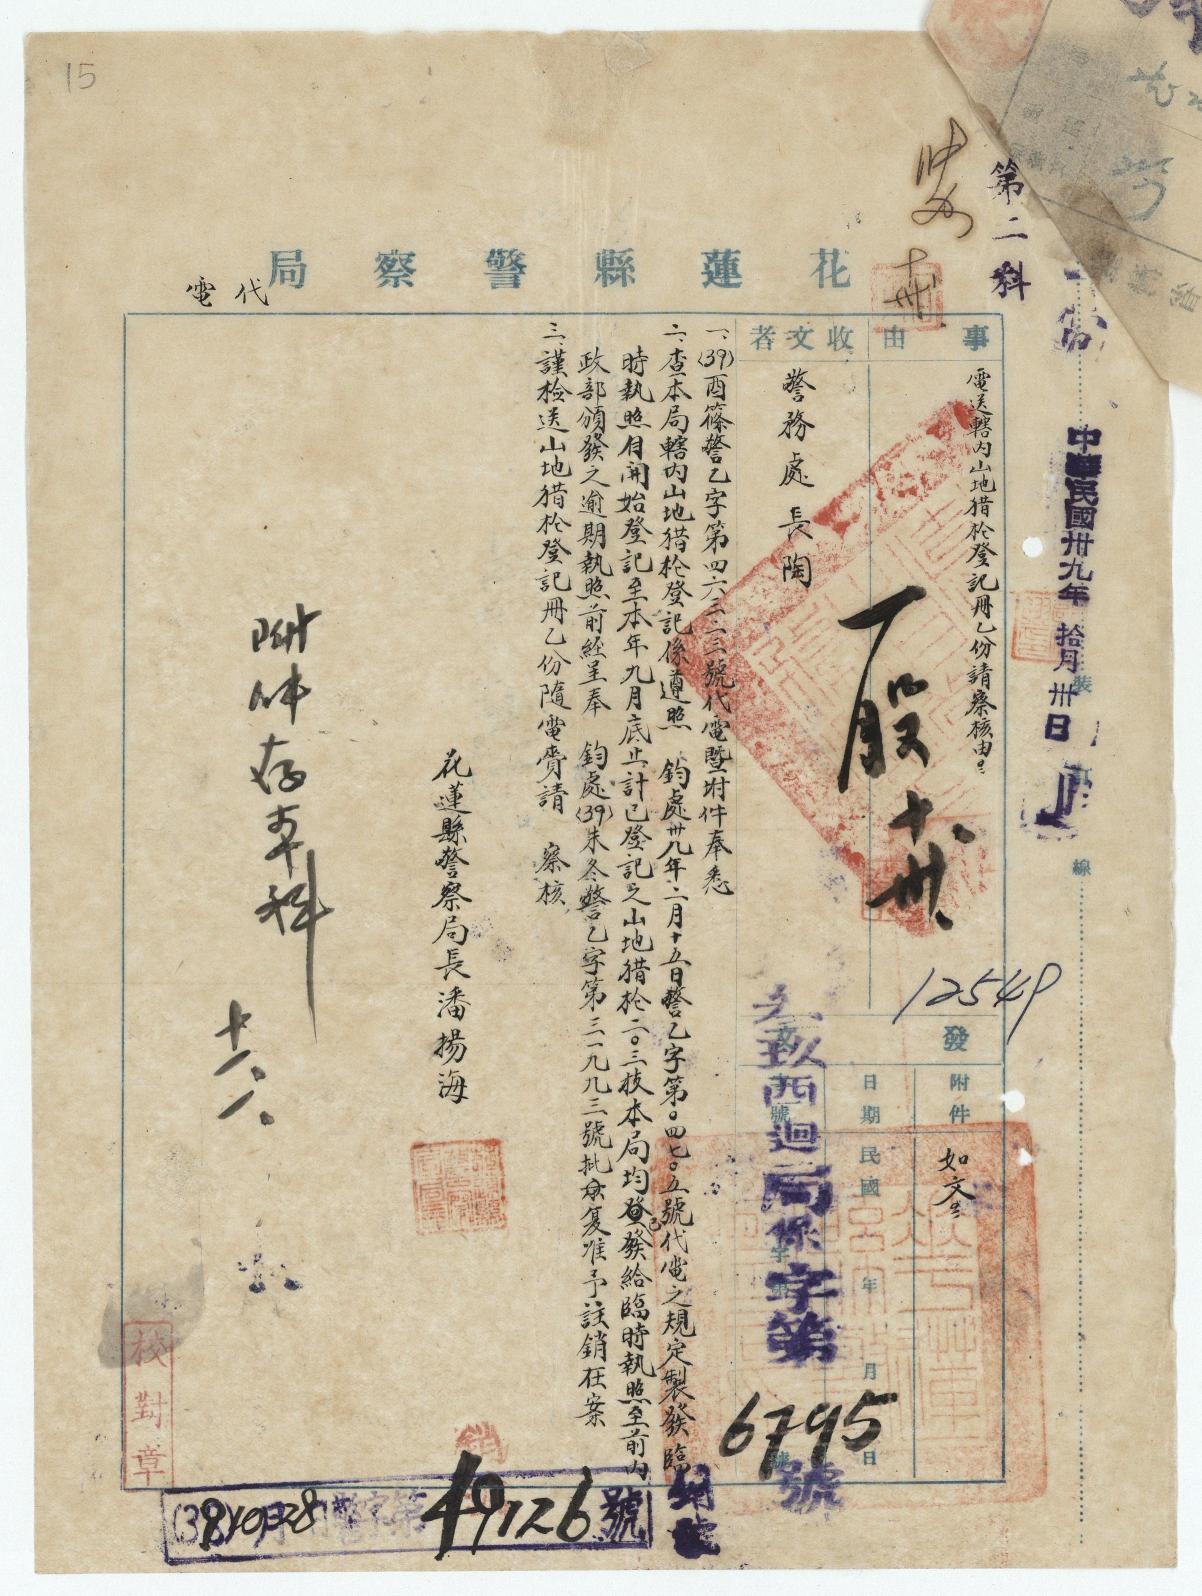 15
第二科
花蓮縣警察局
代電
中華民國卅九年拾月卅日
裝
線
事由
電送轄內山地猎枪登記冊乙份請察核由
收文者
警務處長陶
12549
發
文
附件
如文
日期
民國 年 月 日
字第 號
局保字第6795號
一、(39)酉篠警乙字第四六三二三號代電暨附件奉悉
二、查本局轄內山地猎枪登記係遵照 鈞處卅八年二月十五日警乙字第〇四七〇五號代電之規定製發臨
時執照自開始登記至本年九月底止計已登記之山地猎枪二〇三枝本局均已發給臨時執照至前內
政部頒發之逾期執照前經呈奉 鈞處(39)未冬警乙字第三一九九三號批復准予註銷在案
三、謹检送山地猎枪登記冊乙份隨電賫請 察核
花蓮縣警察局長潘揚海
附件存本科
十一、一、
校對章
(39)10月28 第49126號